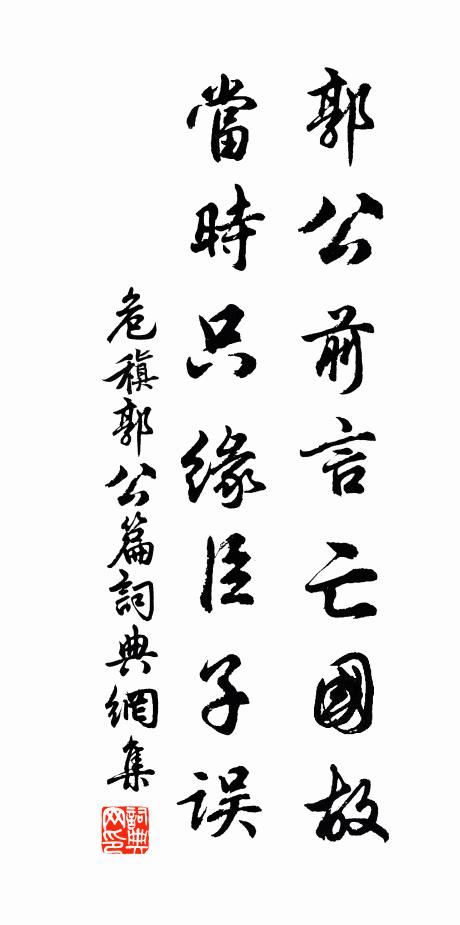 郭公前言亡國故
當時只緣臣子誤
危稹郭公篇詞典網集
詞典网印